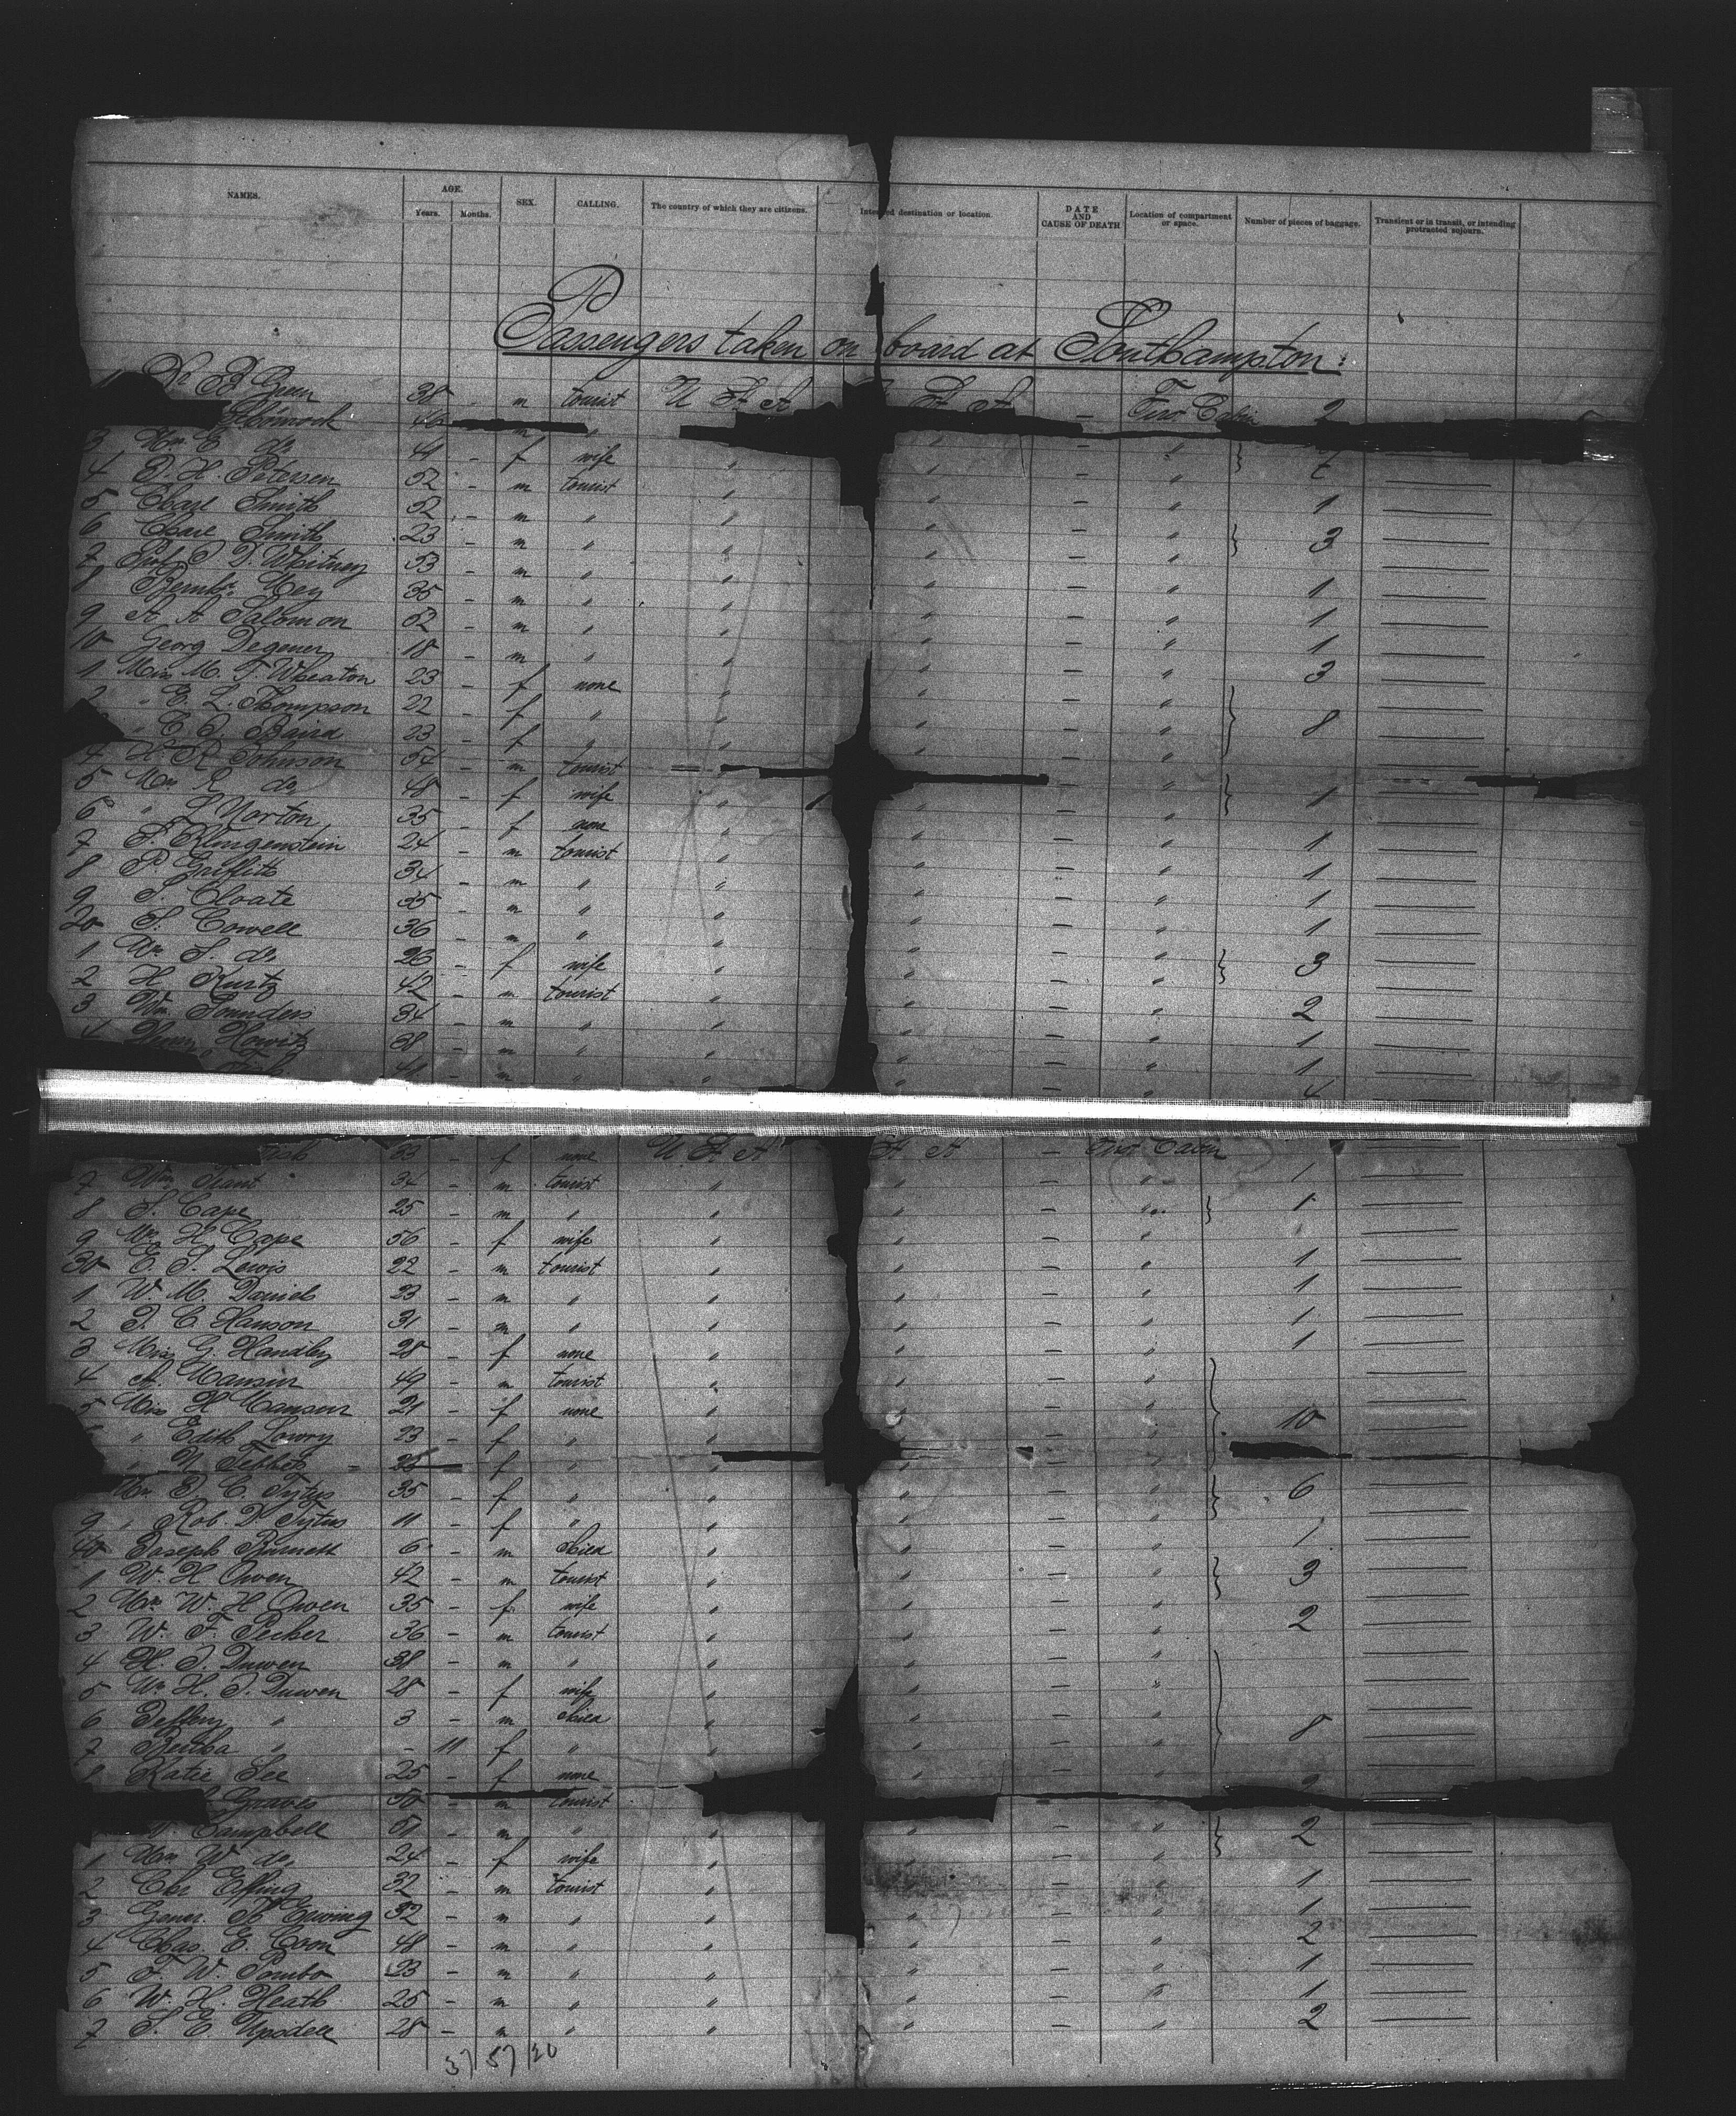 NAMES. AGE. Years. Months. SEX. CALLING. The country of which they are citizens. Intended destination or location. DATE AND CAUSE OF DEATH Location of compartment or space. Number of pieces of baggage. Transient or in transit, or intending protracted sojourn.
Passengers taken on board at Southampton:
Green 38 - m tourist U S A S A - First Cabin 2
46 - m "
3 44 - f wife " " - "
4 P. H. Petersen 52 - m tourist " " - "
5 Smith 52 - m " " " - " 1
6 Smith 23 - m " " " - " 3
7 Prof. J. D. Whitney 53 - m " " " - "
8 Mey 35 - m " " " - " 1
9 A. A. Salomon 52 - m " " " - " 1
10 Georg Degener 18 - m " " " - " 1
1 Miss M. F. Wheaton 23 - f none " " - " 3
2 " E. L. Thompson 22 - f " " " - "
" Baird 23 - f " " " - " 8
4 H. R. Johnson 54 - m tourist " - "
5 Mrs R. do 48 - f wife " " - " 1
6 " L Norton 35 - f none " " - "
7 S. Klingenstein 24 - m tourist " " - " 1
8 P. Griffith 34 - m " " " - " 1
9 S. Cloate 35 - m " " " - " 1
20 S. Cowell 36 - m " " " - " 1
1 Mrs S. do 26 - f wife " " - " 3
2 H. Kurtz 42 - m tourist " " - "
3 Wm Sounders 34 - m " " " - " 2
4 Henry Horwitz 38 - m " " " - " 1
- m " " " - " 1
4
63 - f none U S A S A - First Cabin
7 Wm Trant 34 - m tourist " " - " 1
8 S. Cape 25 - m " " " - " 1
9 Mrs H Cape 56 - f wife " " - "
30 E. S. Lewis 22 - m tourist " " - " 1
1 W. M. Daniels 23 - m " " " - " 1
2 J. C. Hanson 31 - m " " " - " 1
3 Miss G. Handley 28 - f none " " - " 1
4 A. Mansur 49 - m tourist " " - "
5 Miss H Mansur 21 - f none " " - " 10
" Edith Lowry 23 - f " " " - "
" Tebbets f " " " - "
Mrs D. C. Tytus 35 - f " " " - " 6
9 " Rob. D Tytus 11 - f " " " - "
40 Joseph Burnett 6 - m child " " - " 1
1 W. H. Owen 42 - m tourist " " - " 3
2 Mrs W. H. Owen 35 - f wife " " - "
3 W. F. Pecker 36 - m tourist " " - " 2
4 H. J. Duwen 38 - m " " " - "
5 Mrs H. J. Duwen 28 - f wife " " - "
6 " 3 - m child " " - "
7 Bertha " - 11 f " " " - " 8
8 Katie See 25 - f none " " - "
Graves 50 - m tourist
Campbell 51 - m " " " - " 2
1 Mrs W. do 24 - f wife " " - "
2 Chr Effing 32 - m tourist " " - " 1
3 Ewing 32 - m " " " - " 1
4 Chas. E. Coon 48 - m " " " - " 2
5 F. W. Pombo 23 - m " " " - " 1
6 W. H. Heath 25 - m " " " - " 1
7 S. E. Upsdell 28 - m " " " - " 2
37 57 20